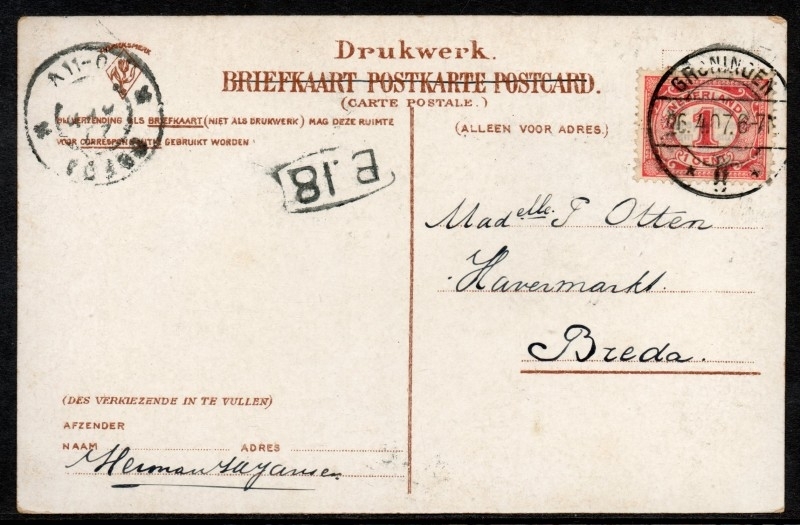 Drukwerk.
BRIEFKAART POSTKARTE POSTCARD.
(CARTE POSTALE.)
BIJ VERZENDING ALS BRIEFKAART (NIET ALS DRUKWERK) MAG DEZE RUIMTE
VOOR CORRESPONDENTIE GEBRUIKT WORDEN
(ALLEEN VOOR ADRES.)
GRONINGEN
NEDERLAND
1
CENT
B.18
Madelle. P Otten
Havermarkt.
Breda.
(DES VERKIEZENDE IN TE VULLEN)
AFZENDER
NAAM ADRES
Herman